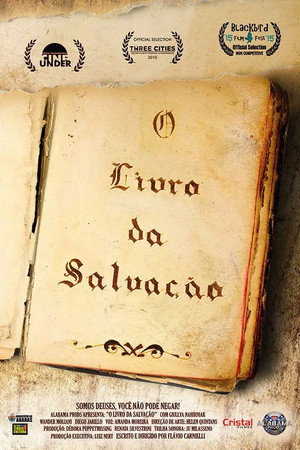 UNDER
OFFICIAL SELECTION
THREE CITIES
2015
Blackbird
15 FILM FEST 15
Official Selection
NON COMPETITIVE
O
Livro
da
Salvação
SOMOS DEUSES, VOCÊ NÃO PODE NEGAR!
ALABAMA FILMS APRESENTA: "O LIVRO DA SALVAÇÃO" COM GIULIA NAHRNIAK
WANDER MOLIANI DIEGO JARELLO VOZ: AMANDA MOREIRA DIREÇÃO DE ARTE: HELEN QUINTANS
PRODUÇÃO: DÉBORA PUPPET RENNER SILVESTRINI TRILHA SONORA: JU MILASENO
PRODUÇÃO EXECUTIVA: LUIZ NERY ESCRITO E DIRIGIDO POR FLÁVIO CARNIELLI
Cristal
ALABAMA